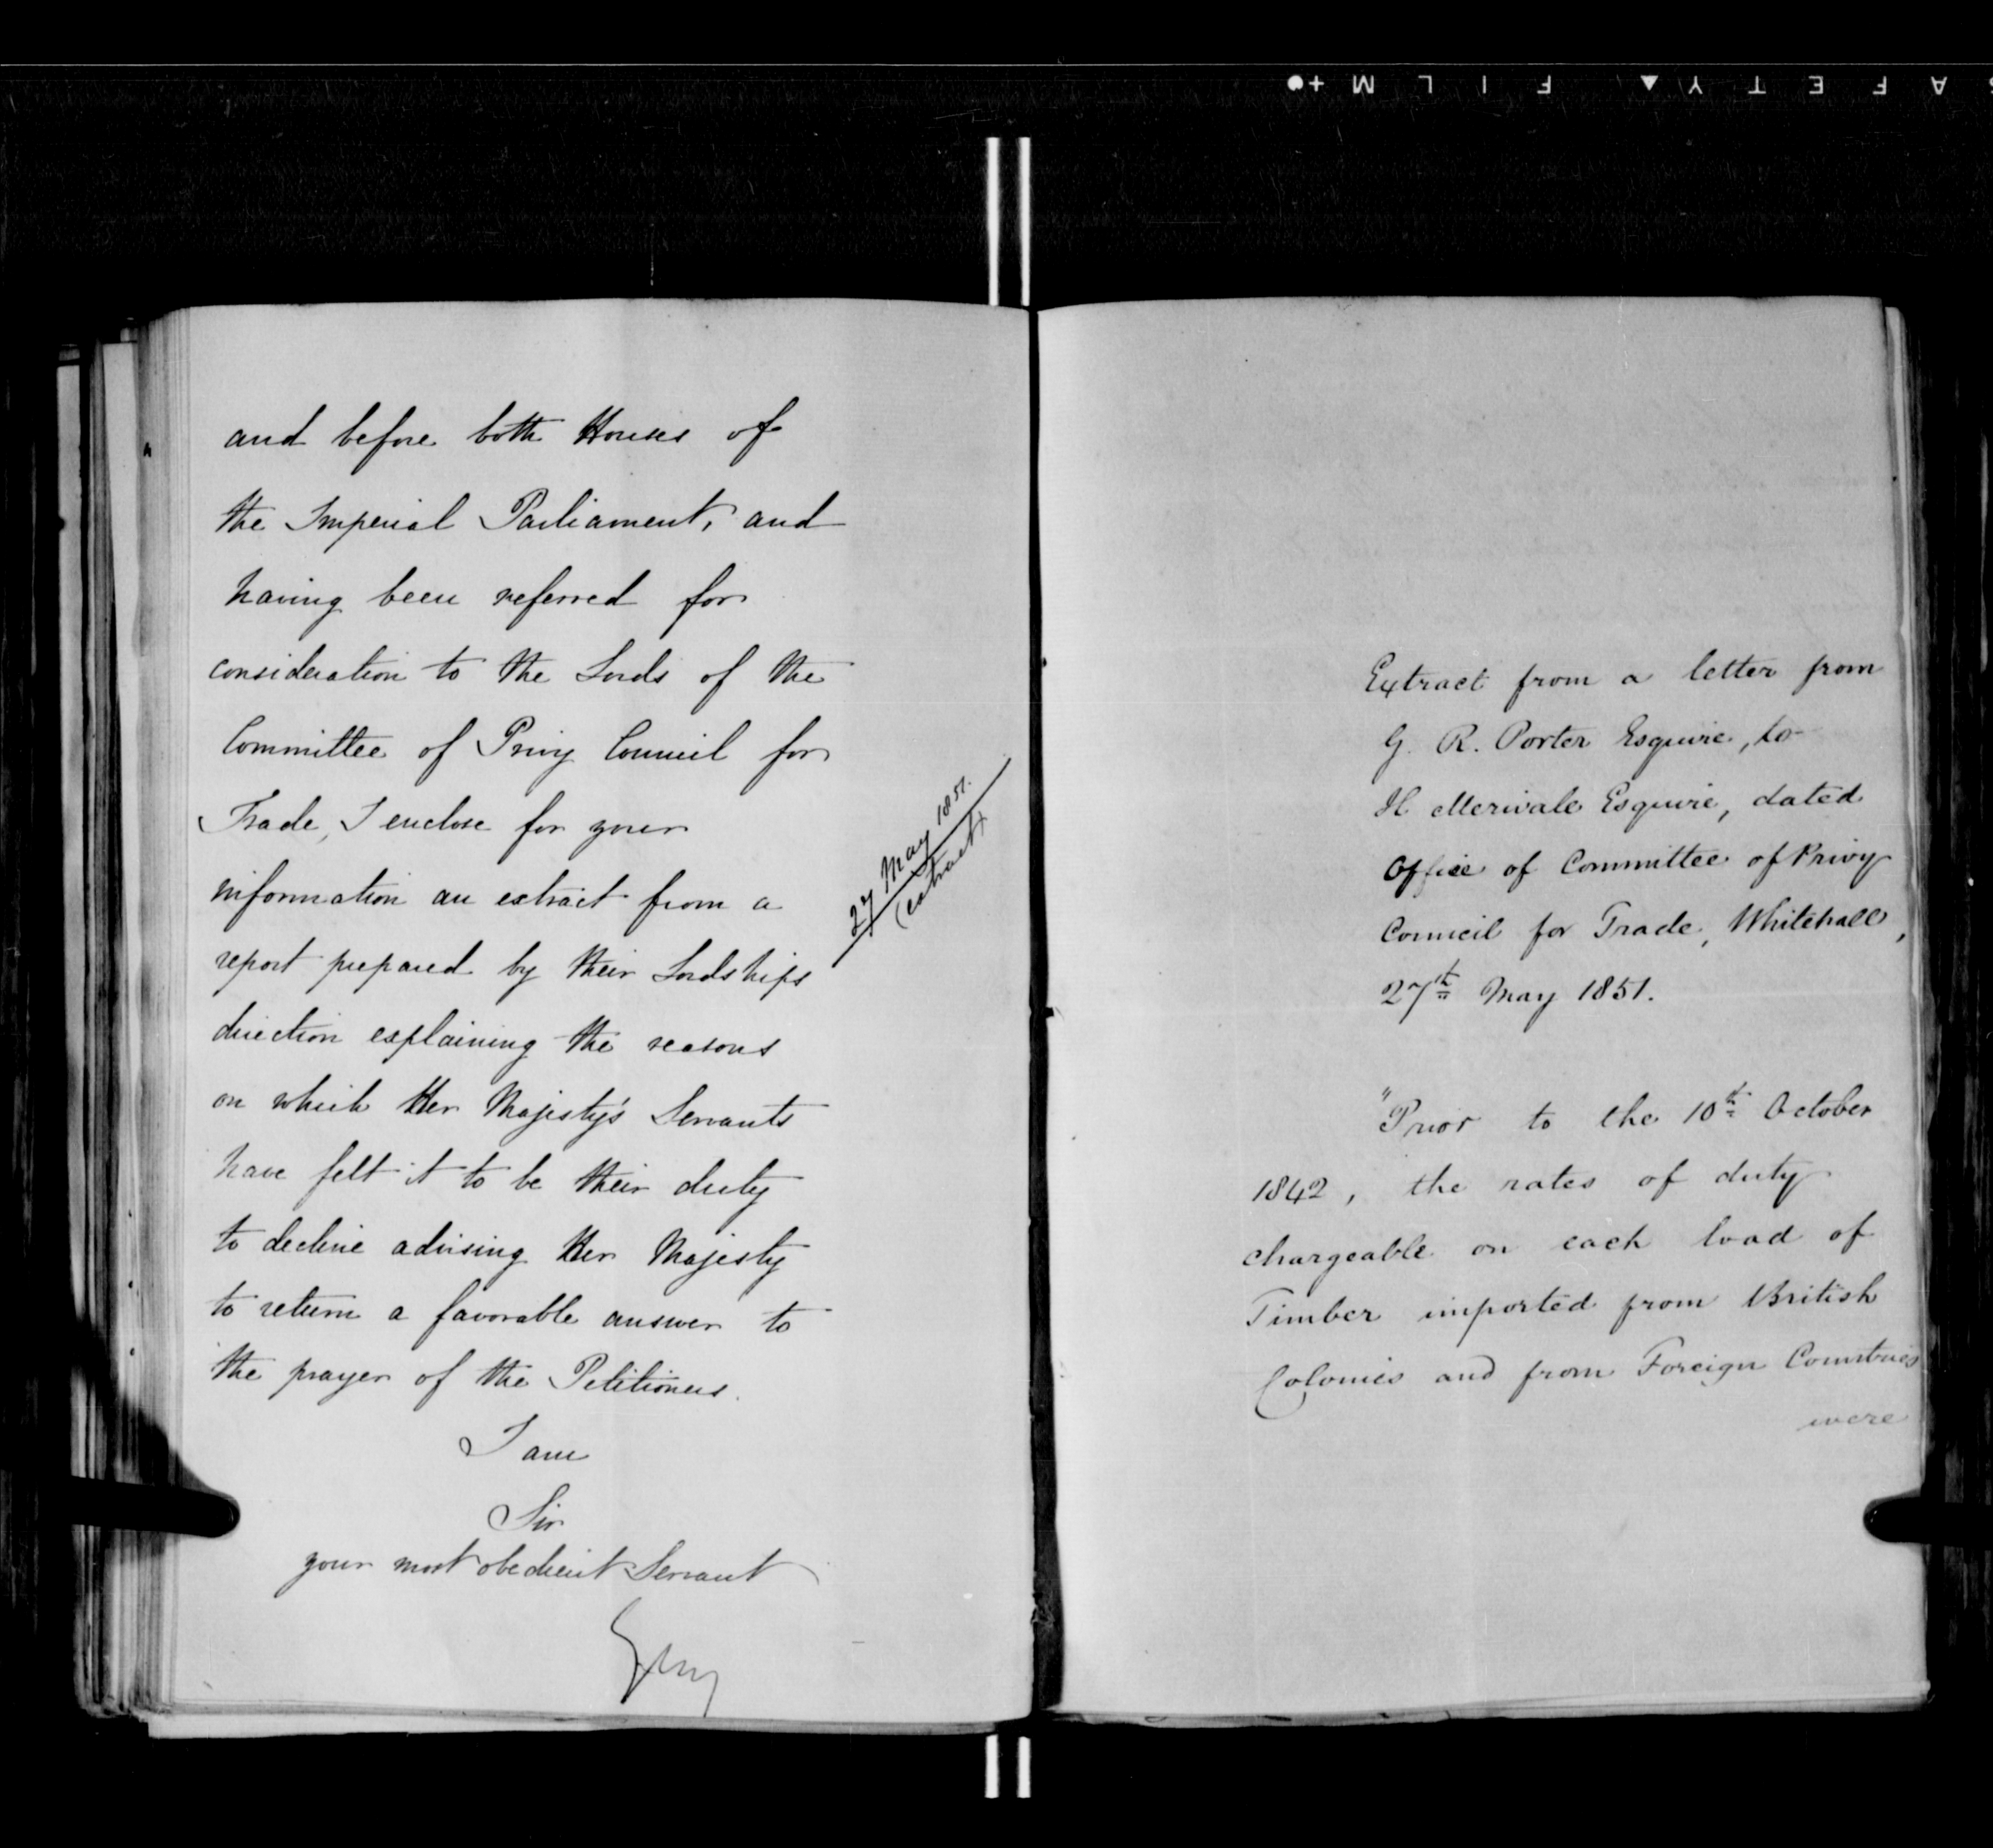 SAFETY ▲ FILM +●
and before both Houses of
the Imperial Parliament, and
having been referred for
consideration to the Lords of the
Committee of Privy Council for
Trade, I enclose for your
information an extract from a
report prepared by their Lordships
direction explaining the reasons
on which Her Majesty's Servants
have felt it to be their duty
to decline advising Her Majesty
to return a favorable answer to
the prayer of the Petitioners.
I am
Sir
your most obedient Servant
Grey
27 May 1851.
(extract)
Extract from a letter from
G. R. Porter Esquire, to
H Merivale Esquire, dated
Office of Committee of Privy
Council for Trade, Whitehall,
27th May 1851.
"Prior to the 10th October
1842, the rates of duty
chargeable on each load of
Timber imported from British
Colonies and from Foreign Countries
were